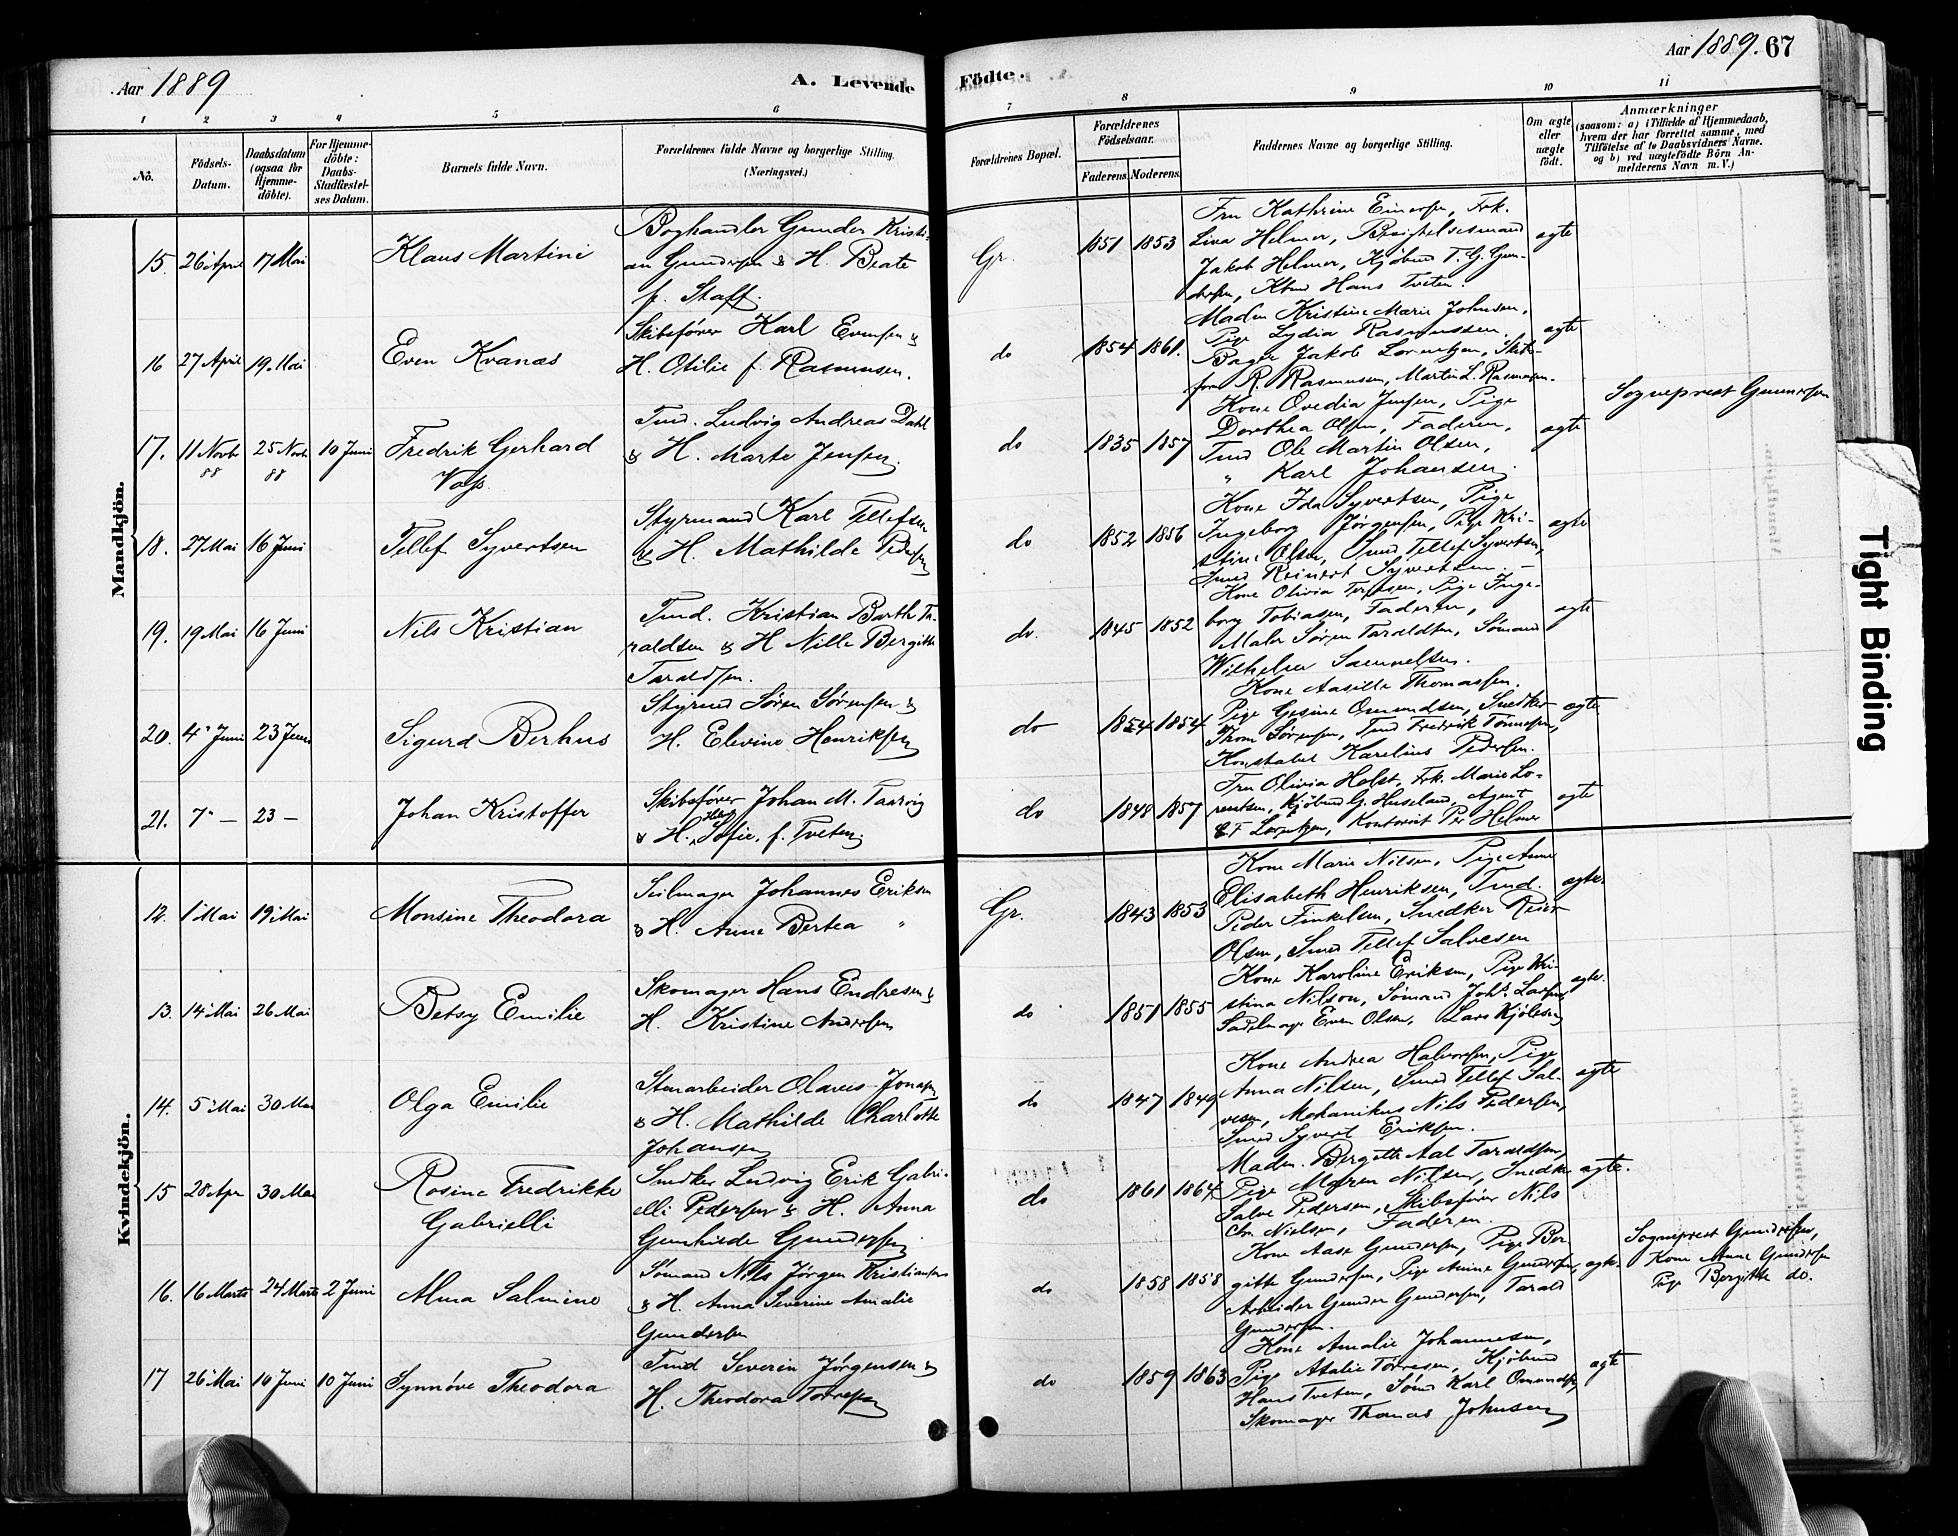 Aar 1889
A. Levende Födte.
Aar 1889. 67
1 2 3 4 5 6 7 8 9 10 11
No.
Födsels-Datum.
Daabsdatum (ogsaa for Hjemmedöbte).
For Hjemmedöbte: Daabs-Stadfæstelses Datum.
Barnets fulde Navn.
Forældrenes fulde Navne og borgerlige Stilling.
(Næringsvei.)
Forældrenes Bopæl.
Forældrenes Födselsaar.
Faderens. Moderens.
Faddernes Navne og borgerlige Stilling.
Om ægte eller uægte født.
Anmærkninger
(saasom: a) i Tilfælde af Hjemmedaab, hvem der har forrettet samme, med Tilföielse af to Daabsvidners Navne. og b) ved uægtefödte Börn Anmelderens Navn m. V.)
Mandkjön.
15. 26 April 17 Mai
Klaus Martini
Boghandler Gunder Kristi-
an Gundersen & H. Beate
f. Staff.
Gr. 1851 1853
Fru Kathrine Einersen, Frk.
Liva Helmer,
Jakob Helmer, Kjøbmd T. G. Gun-
dersen, Kbmd Hans Tveten.
ægte
16 27 April 19 Mai
Even Kvanæs
Skibsfører Karl Evensen &
H. Otilie f. Rasmussen.
do 1854 1861.
Madm Kristine Marie Johnsen,
Pige Lydia Rasmussen.
Bager Jakob Lorentzen, Skibs-
fører R. Rasmussen, Martin L. Rasmussen.
ægte
17. 11 Novbr 88 25 Novbr 88 10 Juni
Fredrik Gerhard
Vass
Tmd. Ludvig Andreas Dahl
& H. Marte Jensen.
do 1835 1857
Kone Ovedia Jensen, Pige
Dorthea Olsen, Faderen,
Tmd Ole Martin Olsen,
" Karl Johansen.
ægte
Sogneprest Gundersen
18. 27 Mai 16 Juni
Tellef Syvertsen
Styrmand Karl Tellefsen
& H. Mathilde Pedersen
do 1852 1856
Kone Ida Syvertsen, Pige
Ingeborg Jørgensen, Pige Kri-
stine Olsen, Smed Tellef Syvertsen,
Smed Reinert Syvertsen. -
ægte
19. 19 Mai 16 Juni
Nils Kristian
Tmd. Kristian Barth Ta-
raldsen & H Nille Bergitte
Taraldsen.
do. 1845 1852
Kone Olivia Terjesen, Pige Inge-
borg Tobiasen, Faderen,
Maler Søren Taraldsen, Sømand
Wilhelm Samuelsen.
ægte
20. 4 Juni 23 Juni
Sigurd Berhus
Styrmd Søren Sørensen &
H. Elevine Henriksen
do 1854 1854
Kone Aasille Thomassen.
Pige Gesine Omundsen, Snedker
Thom Sørensen, Tmd Fredrik Tønnesen,
Konstabel Karelius Pedersen.
ægte
21. 7 - 23 -
Johan Kristoffer
Skibsfører Johan M. Taarvig
& H. Helg Sofie, f. Tveten.
do 1848 1857
Fru Olivia Holst, Frk. Marie Lo-
rentsen, Kjøbmd G. Huseland, Agent
C. F. Lorentzen, Kontorist Per Helmer
ægte
Kvindekjön.
12. 1 Mai 19 Mai
Monsine Theodora
Seilmager Johannes Eriksen
& H. Anne Bertea "
Gr. 1843 1853
Kone Marie Nilsen, Pige Anne
Elisabeth Henriksen, Tmd.
Peder Finkelsen, Snedker Reier
Olsen, Smed Tellef Salvesen
ægte
13. 14 Mai 26 Mai
Betsy Emilie
Skomager Hans Endresen &
H. Kristine Andersen
do 1851 1855
Kone Karoline Eriksen, Pige Kri-
stina Nilson, Sømand Johs. Larsen,
Sadelmager Even Olsen, Lars Kjølesen
ægte.
14. 5 Mai 30 Mai
Olga Emilie
Stenarbeider Olaves Jonasen
& H. Mathilde Charlotte
Johansen
do 1847 1849
Kone Andrea Halvorsen, Pige
Anna Nilsen, Smed Tellef Sal-
vesen, Mekanikus Nils Pedersen,
Smed Syvert Eriksen.
ægte
15 28 Apr 30 Mai
Rosine Fredrikke
Gabrielli
Snedker Ludvig Erik Gabri-
elli Pedersen & H. Anna
Gunhilde Gundersen
do 1861 1864
Madm. Bergitte Aal Taraldsen,
Pige Maren Nilsen, Snedker
Salve Pedersen, Skibsfører Nils
Chr. Nielsen, Faderen.
ægte.
16. 16 Marts 24 Marts 2 Juni
Alma Salmine
Sømand Nils Jörgen Kristiansen
& H. Anna Severine Amalie
Gundersen
do 1858 1858
Kone Aase Gundersen, Pige Ber-
gitte Gundersen, Pige Anine Gundersen,
Arbeider Gunder Gundersen, Tarald
Gundersen.
ægte.
Sogneprest Gundersen,
Kone Anne Gundersen
Pige Bergitte do.
17 26 Mai 10 Juni 10 Juni
Synnöve Theodora
Tmd Severin Jörgensen &
H. Theodora Torresen
do 1859 1863
Kone Amalie Johannesen,
Pige Atalie Torresen, Kjøbmd
Hans Tveten, Sømd Karl Omundsen,
Skomager Thomas Johnsen
ægte
Tight Binding